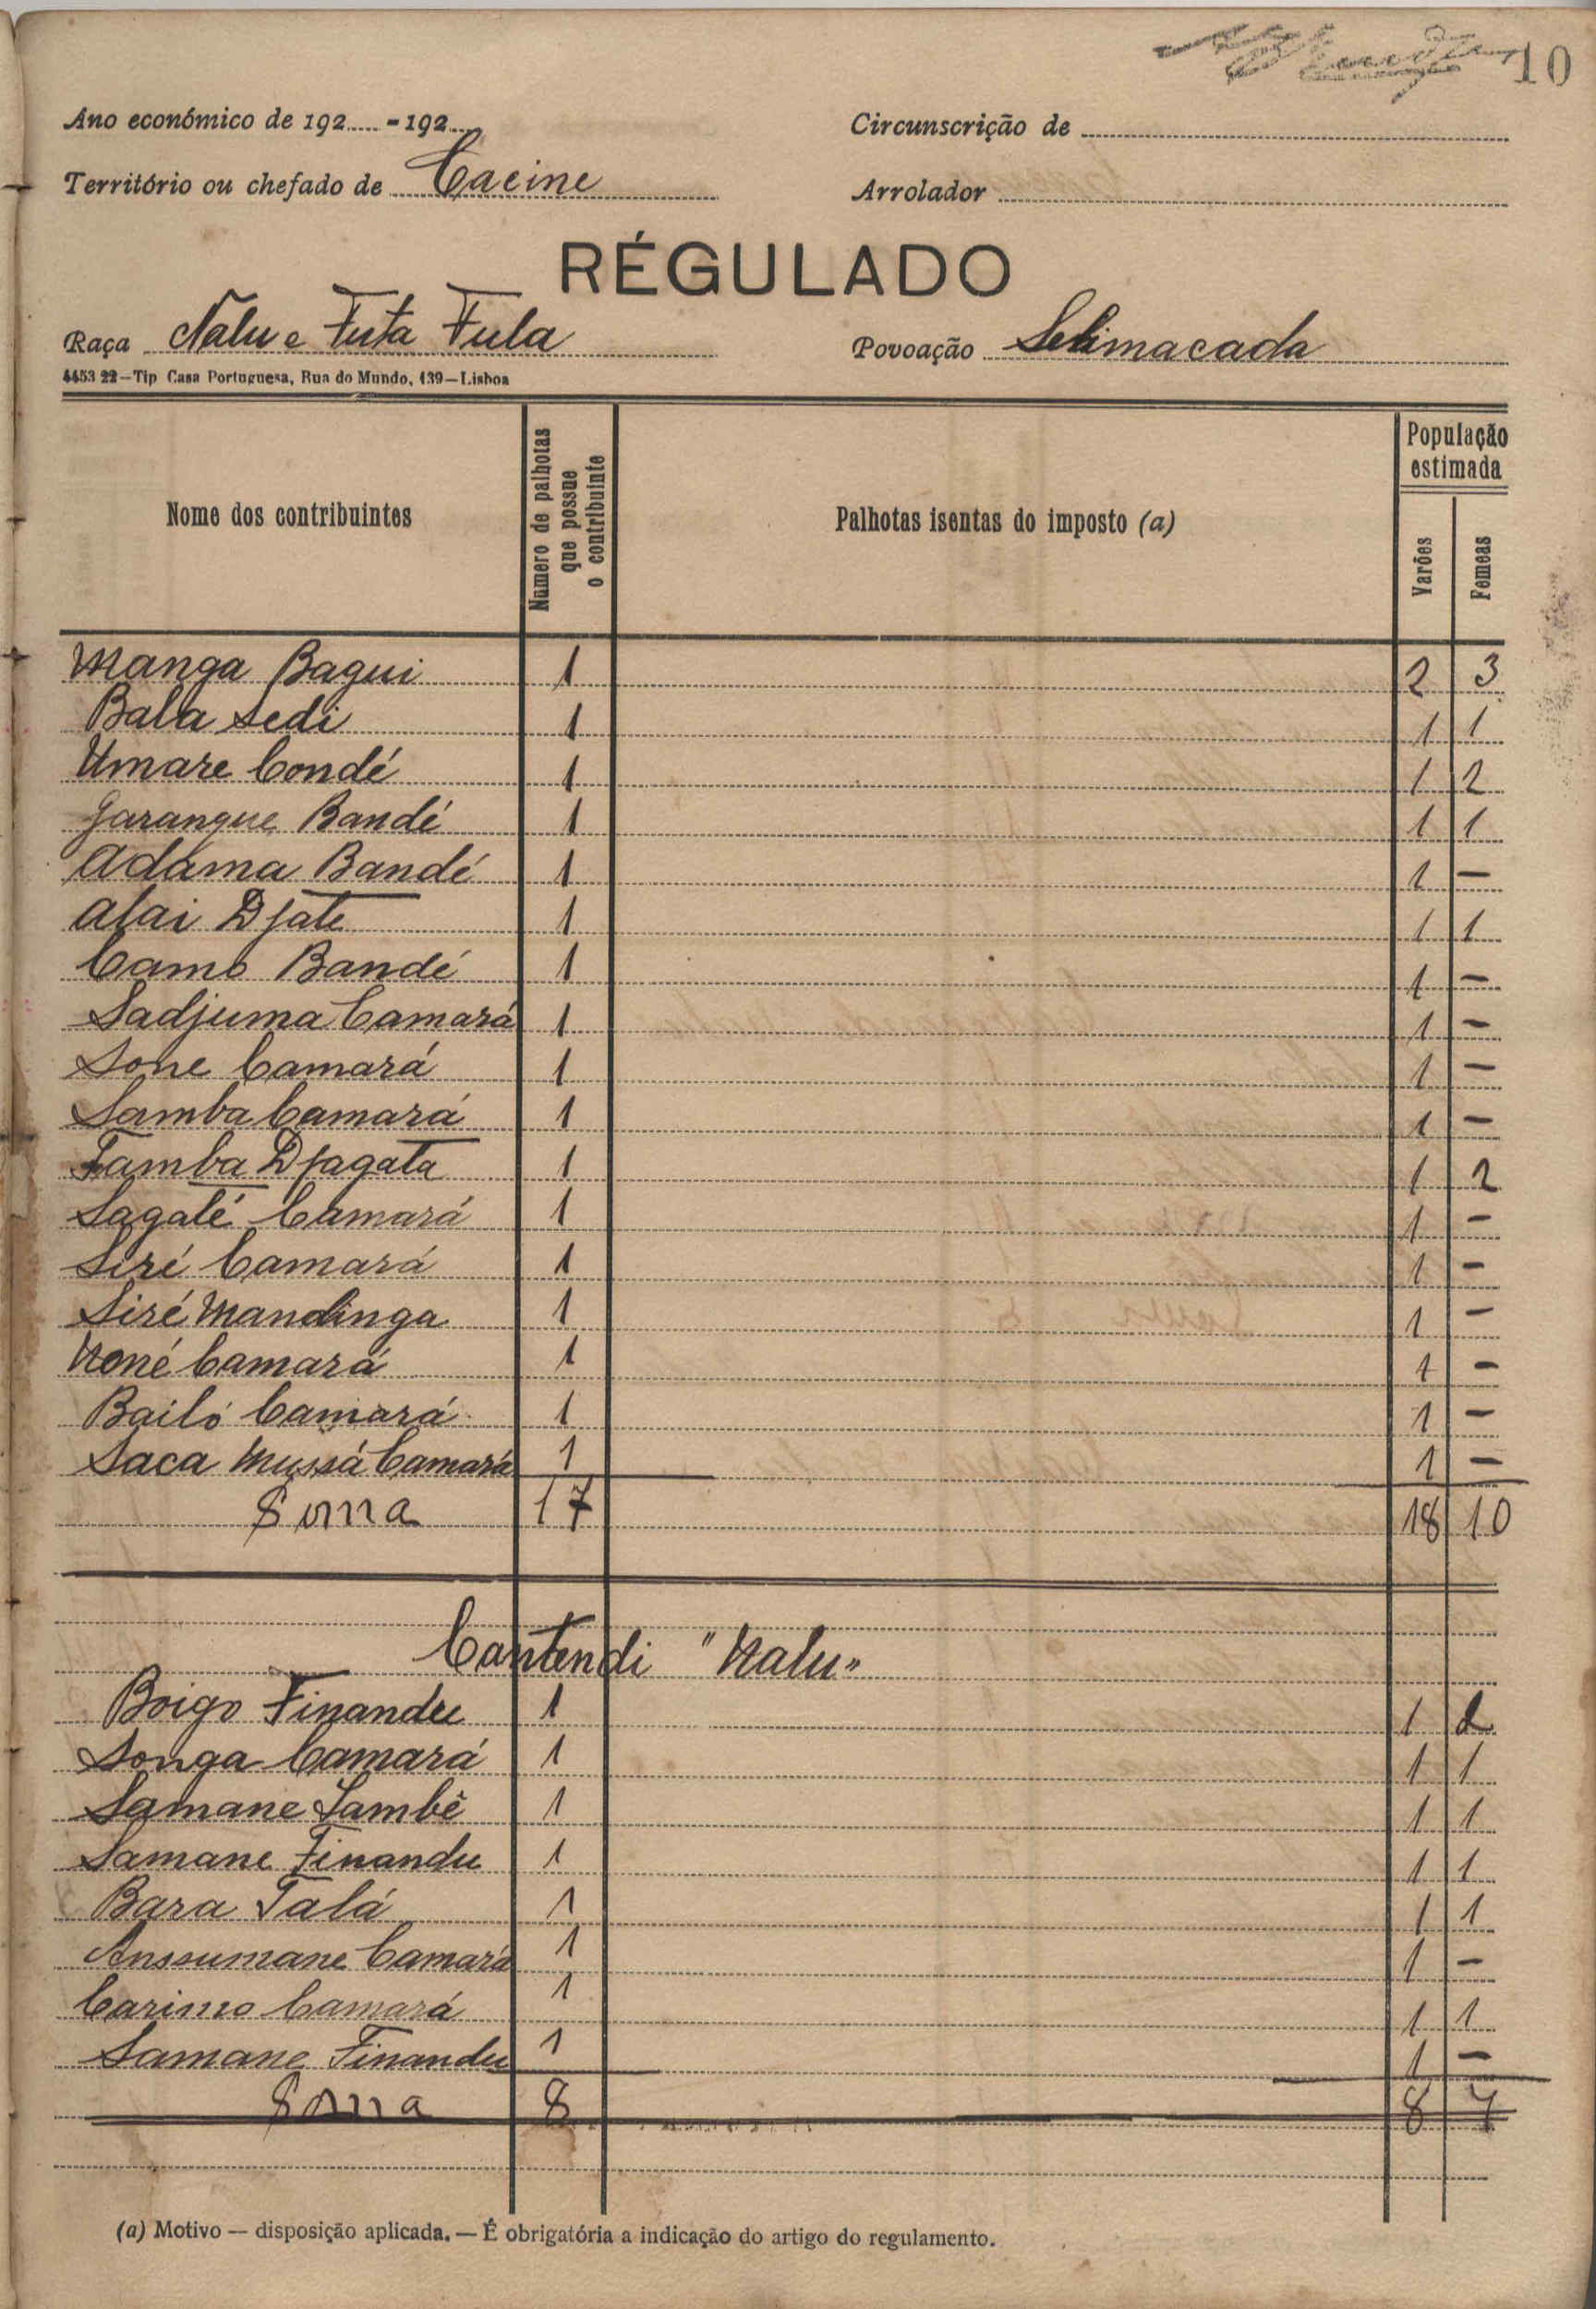 10
Ano económico de 192.....-192.....
Circunscrição de
Território ou chefado de Cacine
Arrolador
RÉGULADO
Raça Nalu e Futa Fula
Povoação Selimacada
4453 22—Tip Casa Portuguesa, Rua do Mundo, 139—Lisboa
Nome dos contribuintes
Numero de palhotas que possue o contribuinte
Palhotas isentas do imposto (a)
População estimada
Varões
Femeas
Manga Bagui 1 2 3
Bala Sedi 1 1 1
Umare Condé 1 1 2
Garangue Bandé 1 1 1
Adama Bandé 1 1 —
Alai Djate 1 1 1
Camo Bandé 1 1 —
Sadjuma Camará 1 1 —
Sone Camará 1 1 —
Samba Camará 1 1 —
Famba Djagata 1 1 2
Sagalé Camará 1 1 —
Siré Camará 1 1 —
Siré Mandinga 1 1 —
Noné Camará 1 1 —
Bailó Camará 1 1 —
Saca Mussá Camará 1 1 —
Soma 17 18 10
Cantendi "Nalu"
Boigo Finandu 1 1 2
Songa Camará 1 1 1
Samane Sambê 1 1 1
Samane Finandu 1 1 1
Bara Talá 1 1 1
Anssumane Camará 1 1 —
Carimo Camará 1 1 1
Samane Finandu 1 1 —
Soma 8 8 7
(a) Motivo — disposição aplicada. — É obrigatória a indicação do artigo do regulamento.